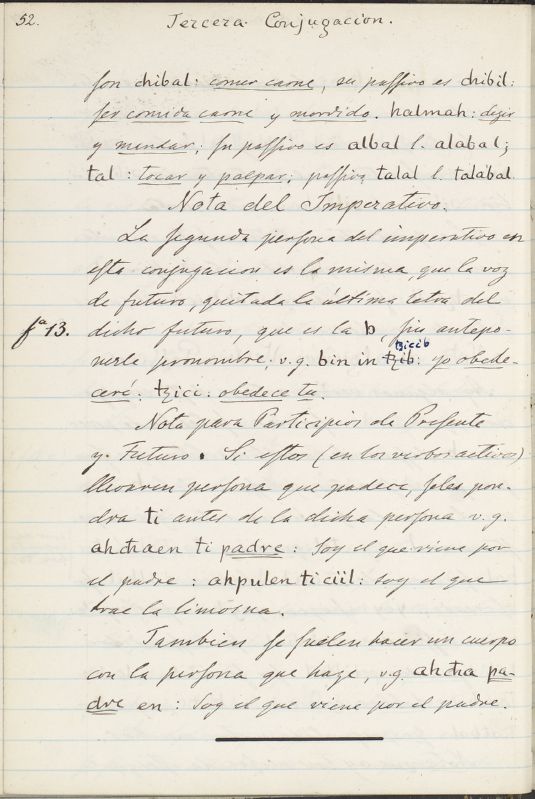 52.
Tercera Conjugacion.
son chibal: comer carne, su passivo es chibil:
ser comida carne y mordido. halmah: dezir
y mandar; su passivo es albal l. alabal;
tal: tocar y palpar; passivo talal l. talabal
Nota del Imperativo.
La segunda persona del imperativo en
esta conjugacion es la misma, que la voz
de futuro, quitada la última letra del
fª 13. dicho futuro, que es la b, sin antepo-
tzicib
nerle pronombre; v.g. bin in tzib: yo obede-
ceré: tzici: obedece tu.
Nota para Participios de Presente
y Futuro. Si estos (en los verbos activos)
llevaren persona que padece, seles pon-
dra ti antes de la dicha persona v.g.
ahchaen ti padre: Soy el que viene por
el padre: ahpulen ti ciil: soy el que
trae la limosna.
Tambien se suelen hacer un cuerpo
con la persona que haze, v.g. ahcha pa-
dre en: Soy el que viene por el padre.